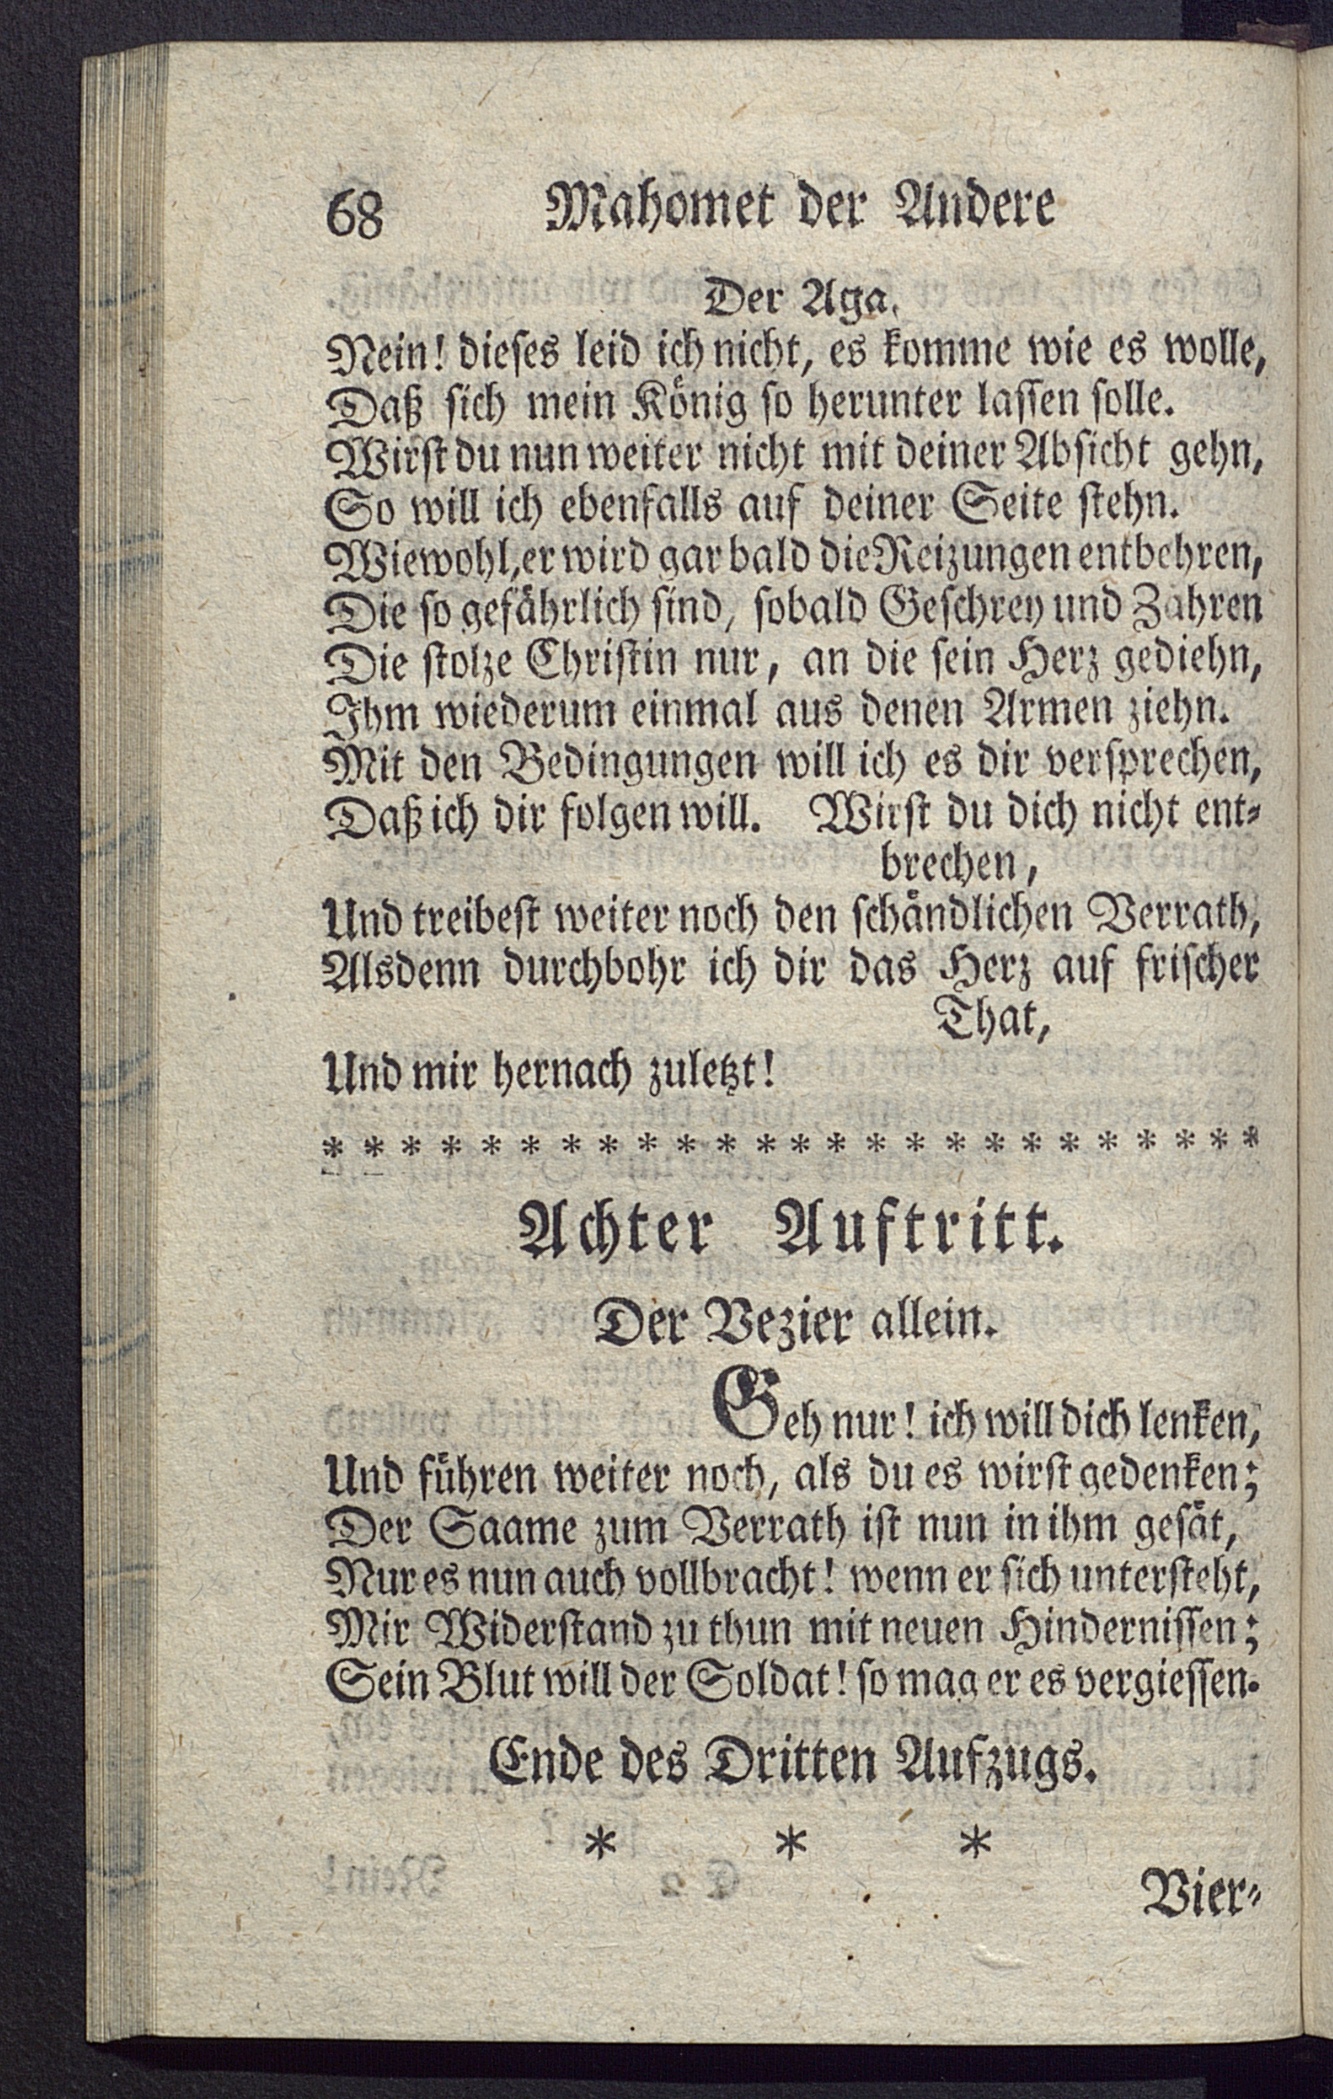 68 Mahomet der Andere
Der Aga.
Nein! dieses leid ich nicht, es komme wie es wolle,
Daß sich mein König so herunter lassen solle.
Wirst du nun weiter nicht mit deiner Absicht gehn,
So will ich ebenfalls auf deiner Seite stehn.
Wiewohl, er wird gar bald die Reizungen entbehren,
Die so gefährlich sind, sobald Geschrey und Zahren
Die stolze Christin nur, an die sein Herz gediehn,
Ihm wiederum einmal aus denen Armen ziehn.
Mit den Bedingungen will ich es dir versprechen,
Daß ich dir folgen will. Wirst du dich nicht ent-
brechen,
Und treibest weiter noch den schändlichen Verrath,
Alsdenn durchbohr ich dir das Herz auf frischer
That,
Und mir hernach zuletzt!
* * * * * * * * * * * * * * * * * * * * * * * * *
Achter Auftritt.
Der Vezier allein.
Geh nur! ich will dich lenken,
Und führen weiter noch, als du es wirst gedenken;
Der Saame zum Verrath ist nun in ihm gesät,
Nur es nun auch vollbracht! wenn er sich untersteht,
Mir Widerstand zu thun mit neuen Hindernissen;
Sein Blut will der Soldat! so mag er es vergiessen.
Ende des Dritten Aufzugs.
* * *
Vier-